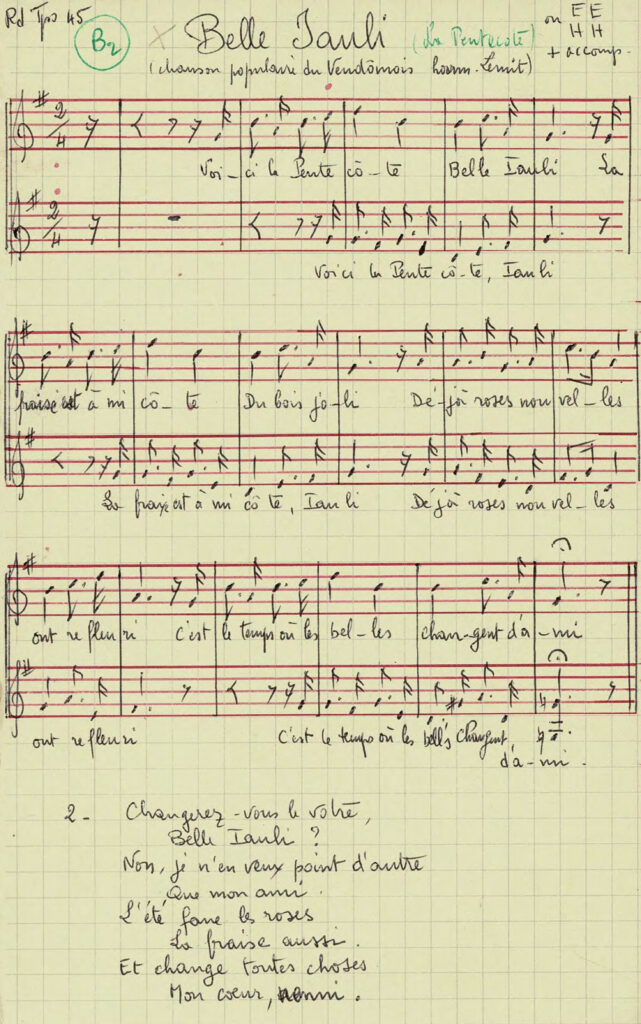 Rd Tps 45
B2
Belle Ianli (La Pentecôte)
ou EE
HH
+ accomp.
(chanson populaire du Vendômois harm.
2/4
Voi-ci la Pente cô-te Belle Ianli La
2/4
Voici la Pente cô-te, Ianli
fraise est à mi cô-te Du bois jo-li Dé-jà roses nou vel-les
La fraise est à mi cô te, Ianli Dé jà roses nou vel-les
ont re fleuri C'est le temps où les bel-les chan-gent d'a-mi
ont re fleuri C'est le temps où les bell's changent
d'a-mi.
2- Changerez-vous le vôtre,
Belle Ianli ?
Non, je n'en veux point d'autre
Que mon ami.
L'été fane les roses
La fraise aussi.
Et change toutes choses
Mon coeur, nenni.